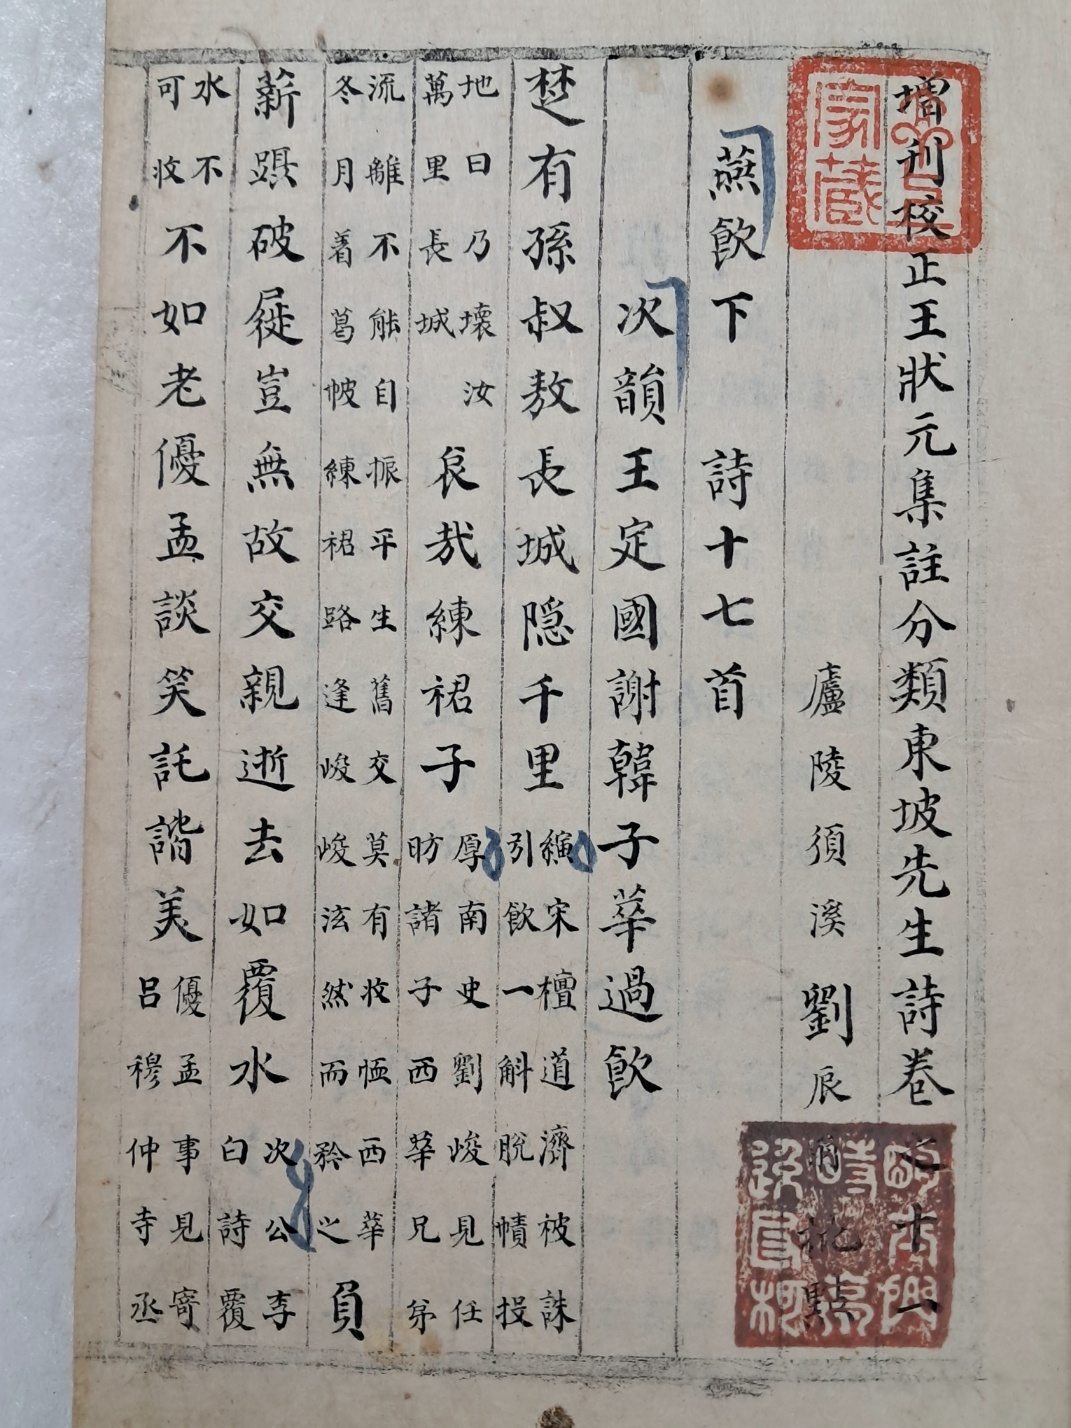 增刊校正王狀元集註分類東坡先生詩卷之十八
廬陵須溪劉辰翁批點
燕飲下 詩十七首
次韻王定國謝韓子華過飲
楚有孫叔敖長城隱千里 縯宋檀道濟被誅
引飲一斛脫幘投
地曰乃壞汝
萬里長城 哀哉練裙子 厚南史劉峻見任
昉諸子西華兄弟
流離不能自振平生舊交莫有收恤西華
冬月着葛帔練裙路逢峻峻泫然而矜之 負
薪躡破屣豈無故交親逝去如覆水 次公李
白詩覆
水不
可收 不如老優孟談笑託諧美 優孟事見寄
呂穆仲寺丞
家藏